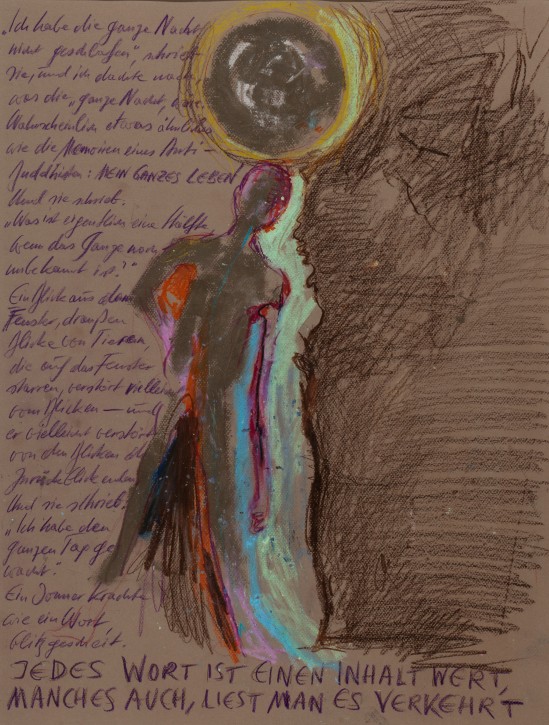 „Ich habe die ganze Nacht
nicht geschlafen", schrieb
sie, und ich dachte nach
was die „ganze Nacht" wäre.
Wahrscheinlich etwas ähnliches
wie die Memoiren eines Anti-
Buddhisten: MEIN GANZES LEBEN
Und sie schrieb:
„Was ist eigentlich eine Hälfte
wenn das Ganze noch
unbekannt ist?"
Ein Blick aus dem
Fenster, draußen
Blicke von Tieren,
die auf das Fenster
starren, verstört vielleicht
vom Blicken — und
er vielleicht verstört
von den Blicken der
Zurückblickenden
Und sie schrieb:
„Ich habe den
ganzen Tag ge
wacht."
Ein Donner krachte
wie ein Wort
blitzgescheit.
JEDES WORT IST EINEN INHALT WERT,
MANCHES AUCH, LIEST MAN ES VERKEHRT